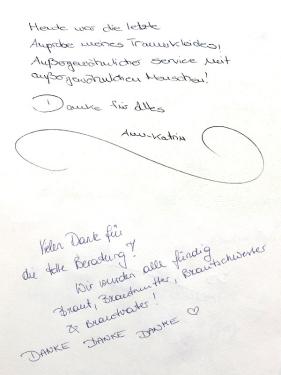 Heute war die letzte
Anprobe meines Traumkleides,
Außergewöhnlicher Service mit
außergewöhnlichen Menschen!
Danke für Alles
Ann-Katrin
Vielen Dank für
die tolle Beratung!
Wir wurden alle fündig
Braut, Brautmutter, Brautschwester
& Brautvater!
DANKE DANKE DANKE ♡